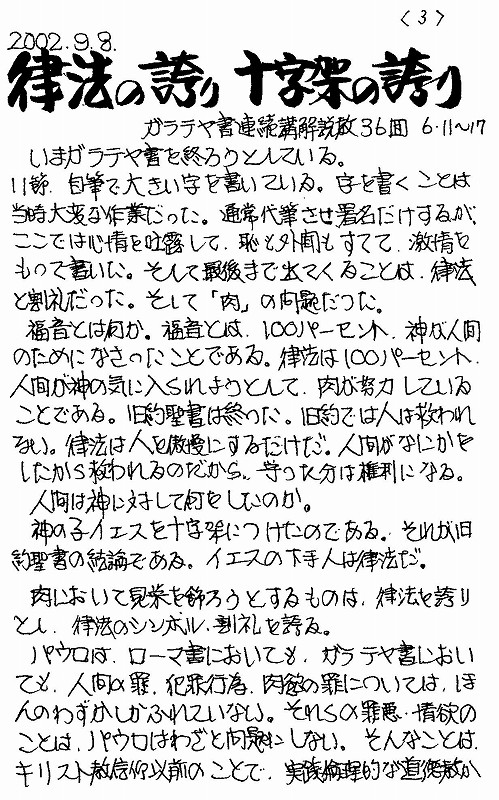 〈3〉
2002.9.8.
律法の誇り 十字架の誇り
ガラテヤ書連続講解説教36回 6・11〜17
いまガラテヤ書を終ろうとしている。
11節、自筆で大きい字を書いている。字を書くことは
当時大変な作業だった。通常代筆させ署名だけするが、
ここでは心情を吐露して、恥も外聞もすてて、激情を
もって書いた。そして最後まで出てくることは、律法
と割礼だった。そして「肉」の問題だった。
福音とは何か。福音とは、100パーセント、神が人間
のためになさったことである。律法は100パーセント、
人間が神の気に入られようとして、肉が努力している
ことである。旧約聖書は終った。旧約では人は救われ
ない。律法は人を傲慢にするだけだ。人間がなにかを
したから救われるのだから、守った分は権利になる。
人間は神に対して何をしたのか。
神の子イエスを十字架につけたのである。それが旧
約聖書の結論である。イエスの下手人は律法だ。
肉において見栄を飾ろうとするものは、律法を誇り
とし、律法のシンボル、割礼を誇る。
パウロは、ローマ書においても、ガラテヤ書におい
ても、人間の罪、犯罪行為、肉欲の罪については、ほ
んのわずかしかふれていない。それらの罪悪、情欲の
ことは、パウロはわざと問題にしない。そんなことは、
キリスト教信仰以前のことで、実践倫理的な道徳教か